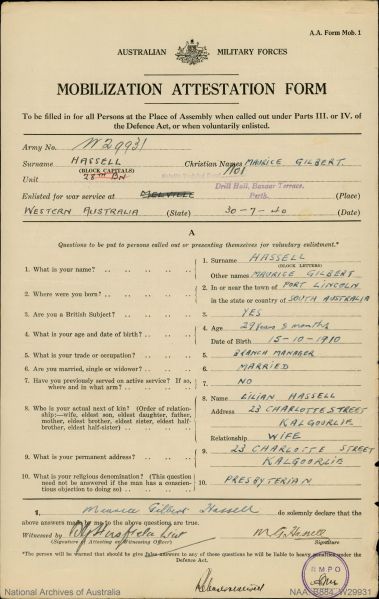 A.A. Form Mob. 1
AUSTRALIAN MILITARY FORCES
MOBILIZATION ATTESTATION FORM
To be filled in for all Persons at the Place of Assembly when called out under Parts III. or IV. of
the Defence Act, or when voluntarily enlisted.
Army No. W29931
Surname HASSELL Christian Names MAURICE GILBERT
(BLOCK CAPITALS)
Unit 28TH BN
Drill Hall, Bazaar Terrace,
Enlisted for war service at MELVILLE Perth. (Place)
WESTERN AUSTRALIA (State) 30-7-40 (Date)
A
Questions to be put to persons called out or presenting themselves for voluntary enlistment.*
1. What is your name? 1. Surname HASSELL
(BLOCK LETTERS)
Other names MAURICE GILBERT
2. Where were you born? 2. In or near the town of PORT LINCOLN
in the state or country of SOUTH AUSTRALIA
3. Are you a British Subject? 3. YES
4. What is your age and date of birth? 4. Age 29 years 9 months
Date of Birth 15-10-1910
5. What is your trade or occupation? 5. BRANCH MANAGER
6. Are you married, single or widower? 6. MARRIED
7. Have you previously served on active service? If so, where and in what arm? 7. NO
8. Who is your actual next of kin? (Order of relationship:—wife, eldest son, eldest daughter, father, mother, eldest brother, eldest sister, eldest half-brother, eldest half-sister) 8. Name LILIAN HASSELL
Address 23 CHARLOTTE STREET
KALGOORLIE
Relationship WIFE
9. What is your permanent address? 9. 23 CHARLOTTE STREET
KALGOORLIE
10. What is your religious denomination? (This question need not be answered if the man has a conscientious objection to doing so) 10. PRESBYTERIAN
I, Maurice Gilbert Hassell do solemnly declare that the
above answers made by me to the above questions are true.
Witnessed by Lieut M G Hassell
(Signature of Attesting or Witnessing Officer) Signature
*The person will be warned that should he give false answers to any of these questions he will be liable to heavy penalties under the
Defence Act.
RMPO
National Archives of Australia NAA: B884, W29931